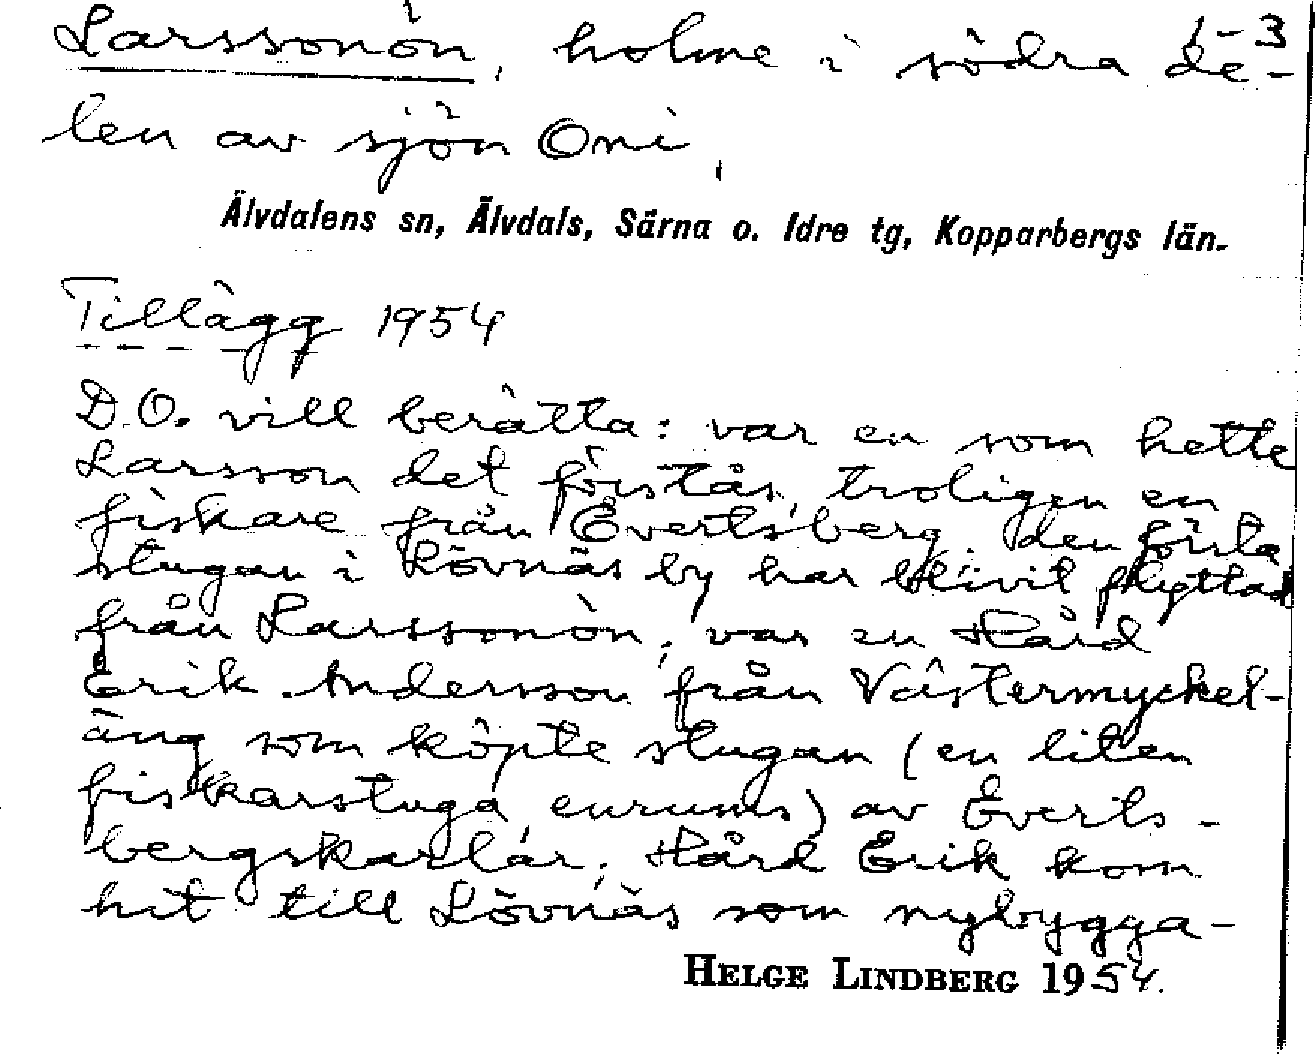 1-3
Larssonön, holme i södra de-
len av sjön Oni,
Älvdalens sn, Älvdals, Särna o. Idre tg, Kopparbergs län.
Tillägg 1954
D.O. vill berätta: var en som hette
Larsson det förstås, troligen en
fiskare från Evertsberg. den första
stugan i Lövnäs by har blivit flyttad
från Larssonön, var en Hård
Erik Andersson från Västermyckel-
äng som köpte stugan (en liten
fiskarstuga, enrums) av Everts-
bergskarlar, Hård Erik kom
hit till Lövnäs som nybygga-
HELGE LINDBERG 1954.